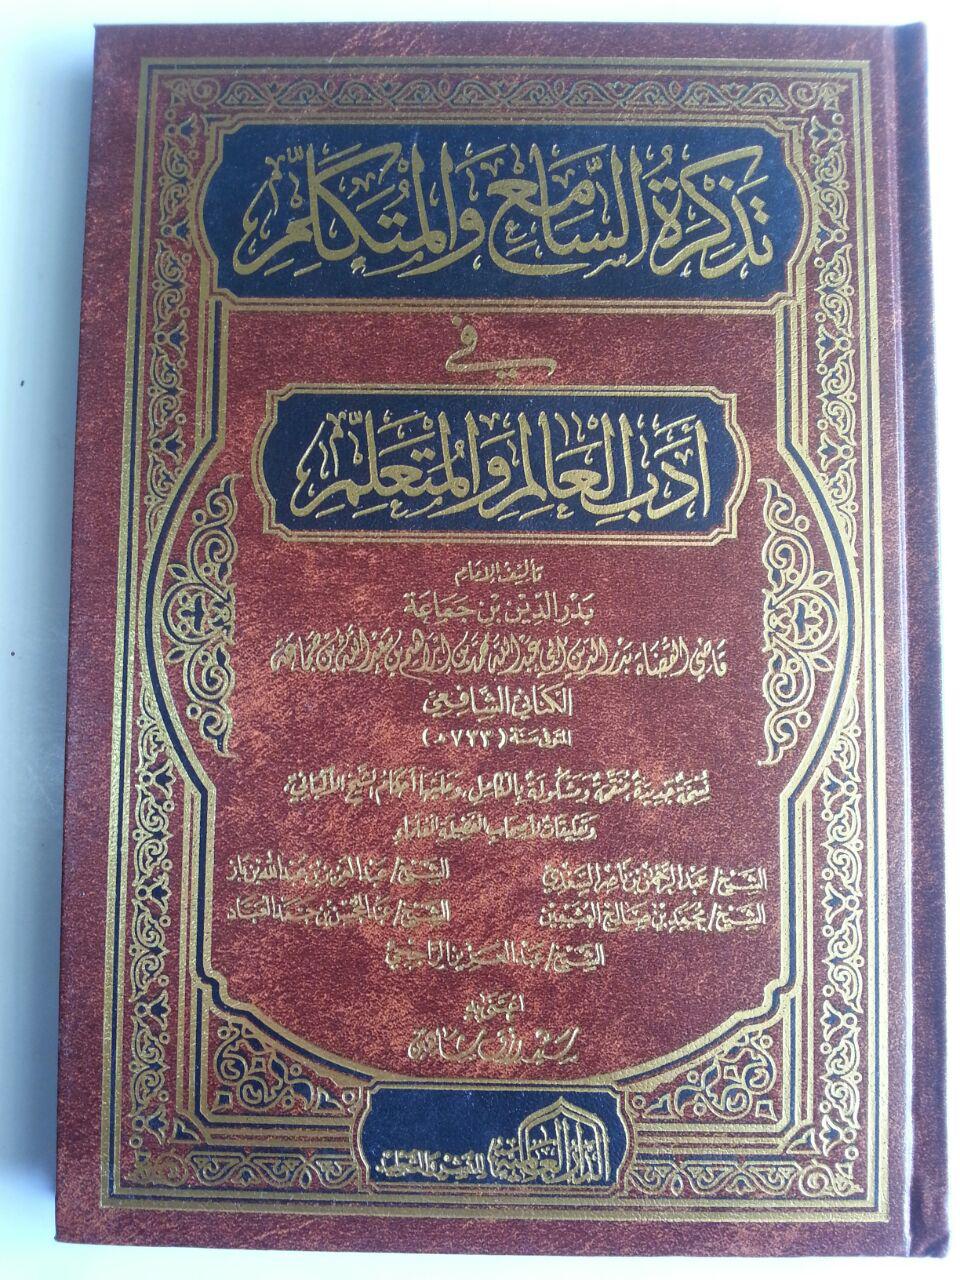 تَذكِرَةُ السَّامِعِ وَالمُتَكَلِّمِ
في
أَدَبِ العَالِمِ وَالمُتَعَلِّمِ
تأليف الإمام
بَدْر الدِّين بن جَمَاعَة
قاضي القضاة بدر الدين أبي عبد الله محمد بن إبراهيم بن سعد الله بن جماعة
الكناني الشَّافعي
المتوفى سنة (٧٣٣ هـ)
نسخة جديدة منقحة ومشكولة بالكامل، وعليها أحكام الشيخ الألباني،
وتعليقات لأصحاب الفضيلة العلماء
الشيخ/ عبد الرحمن بن ناصر السعدي الشيخ/ عبد العزيز بن عبد الله بن باز
الشيخ/ محمد بن صالح العثيمين الشيخ/ عبد المحسن بن حمد العباد
الشيخ/ عبد العزيز الراجحي
اعتنى به
الدار العالمية للنشر والتوزيع